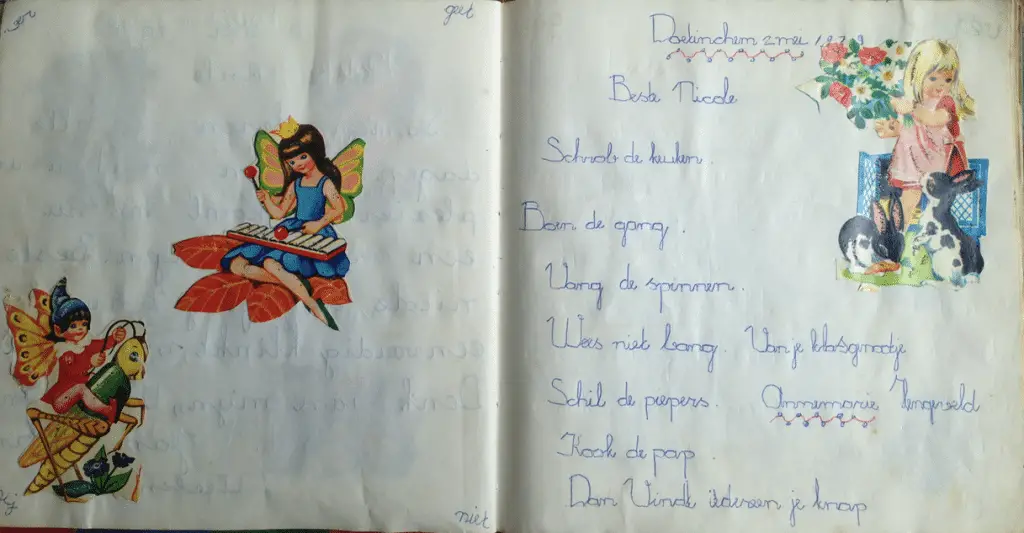 geet
niet
Doetinchem 2 mei
Beste Nicole
Schrob de keuken.
Boen de gang.
Vang de spinnen.
Wees niet bang. Van je klasgenootje
Schil de piepers. Annemarie
Kook de pap.
Dan Vindt iedereen je knap